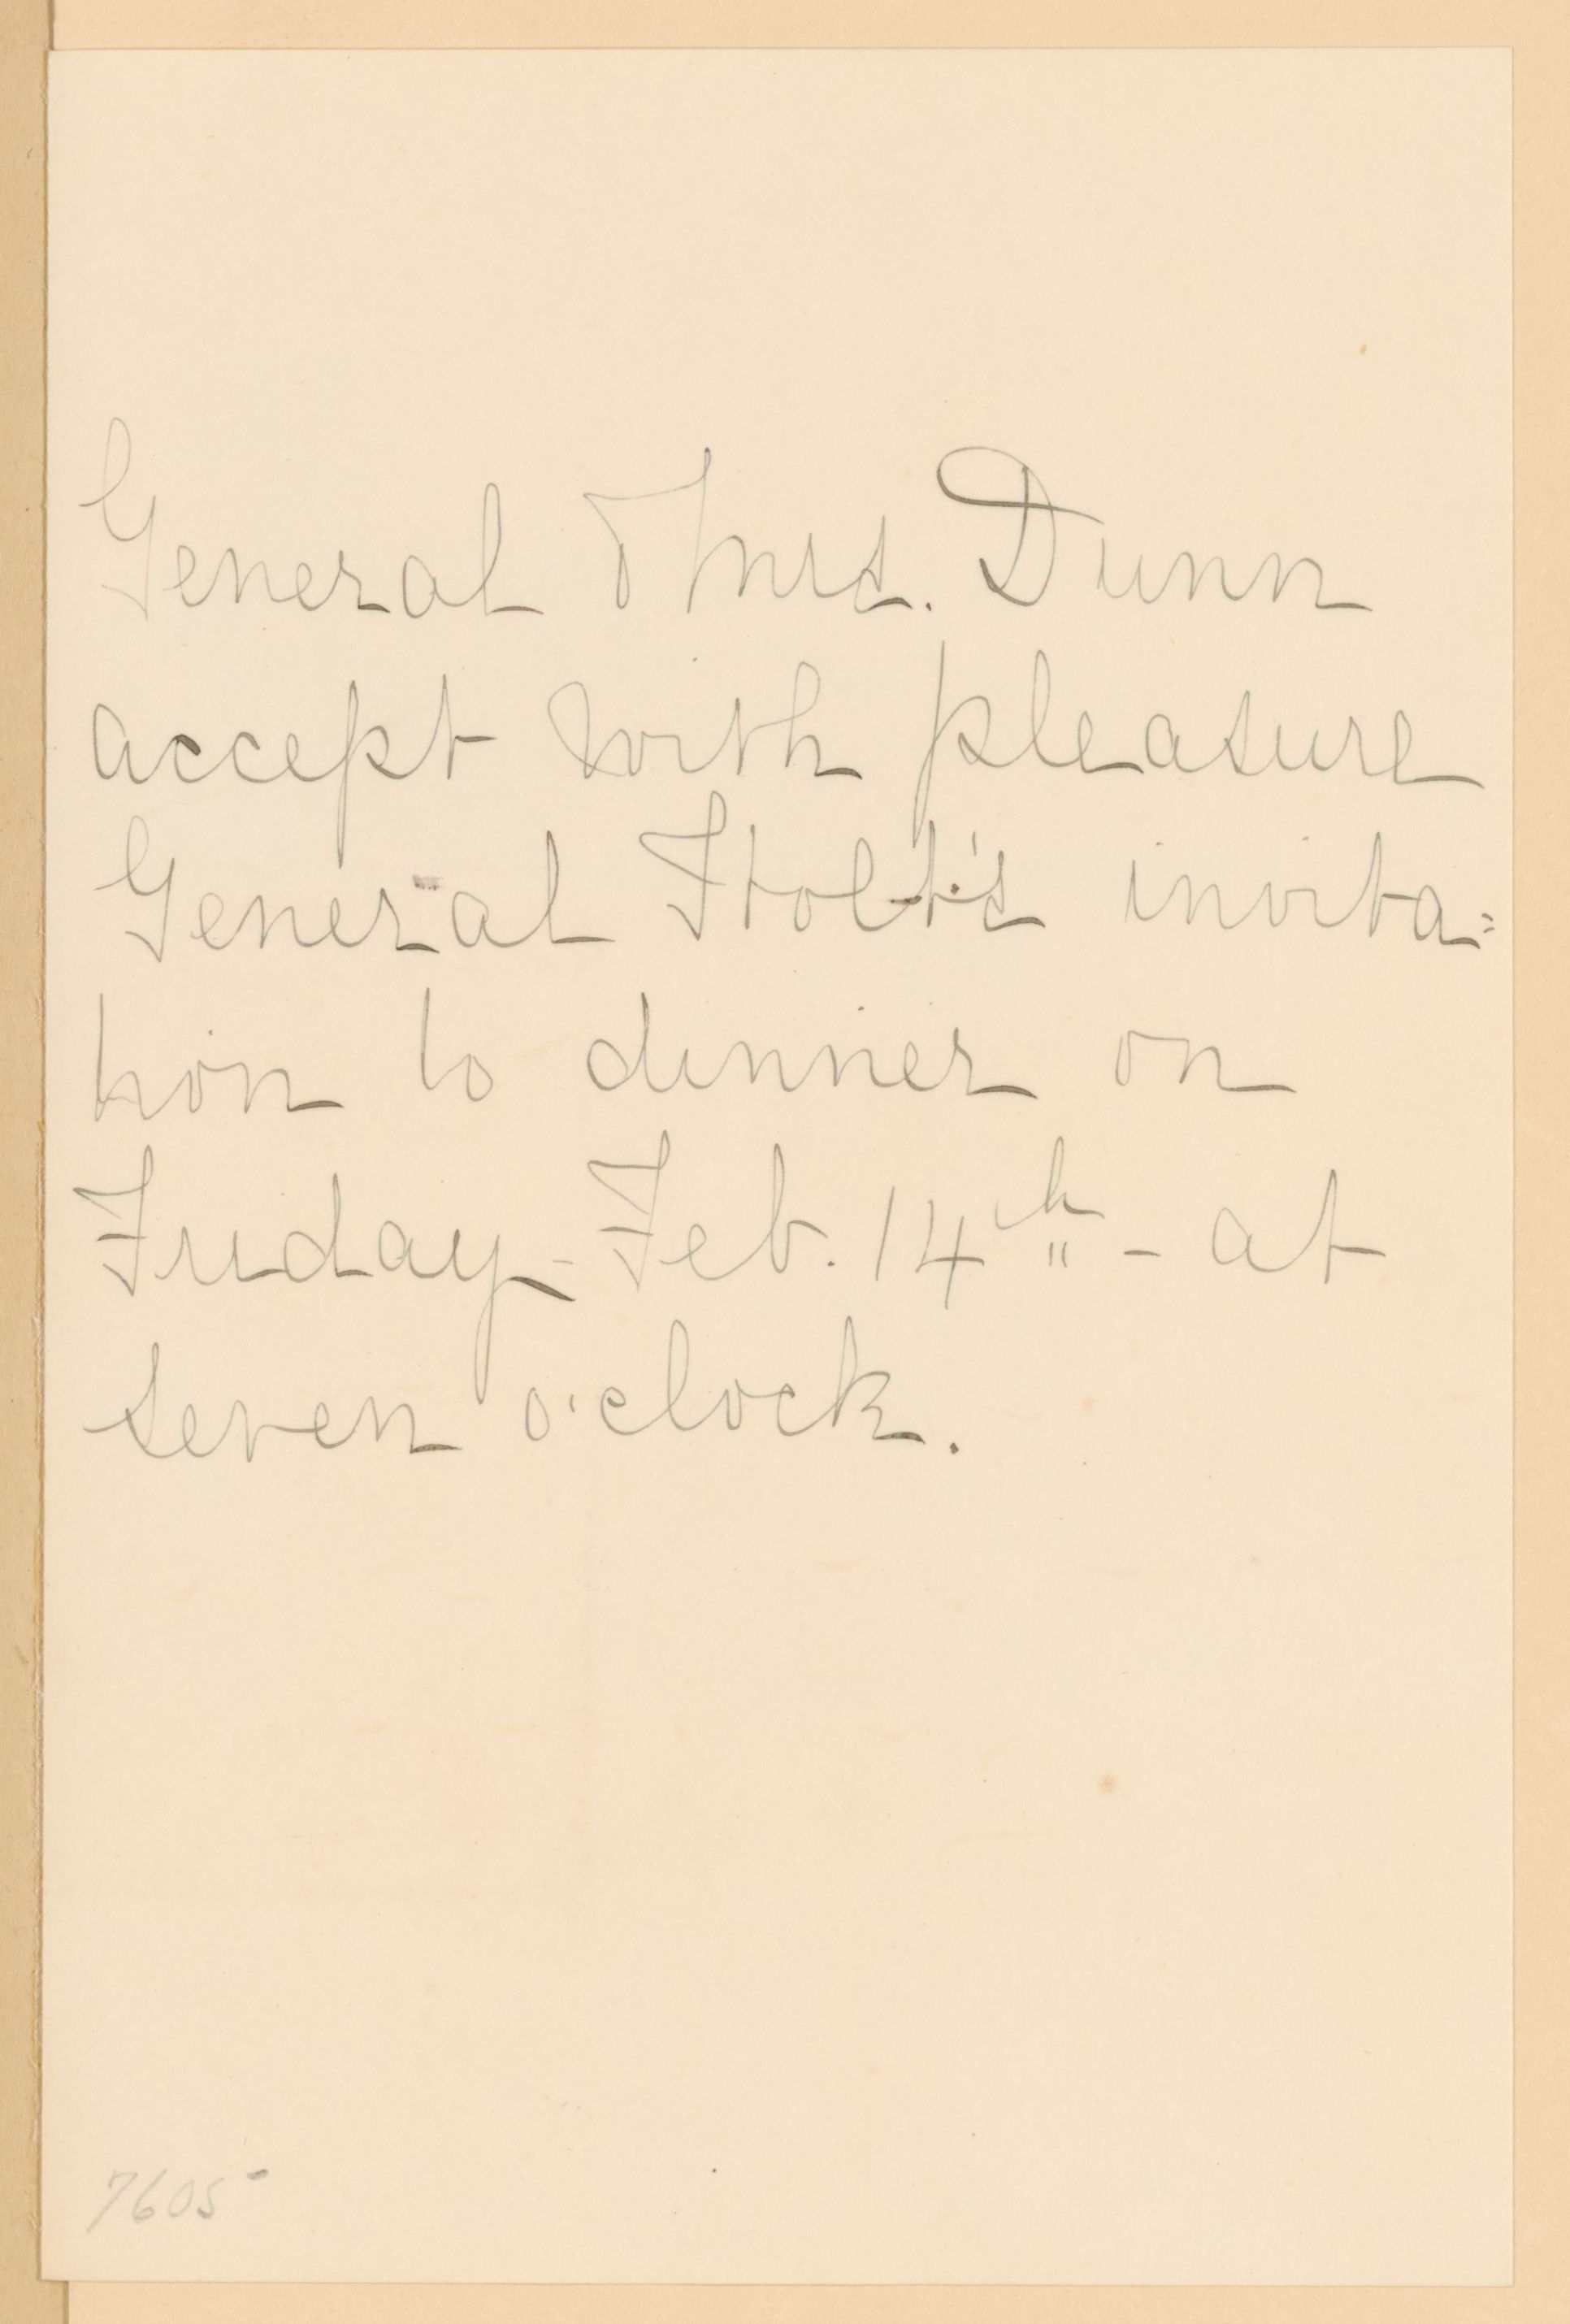 General & Mrs. Dunn
accept with pleasure
General Holt's invita=
tion to dinner on
Friday - Feb. 14th - at
seven o'clock.
7605